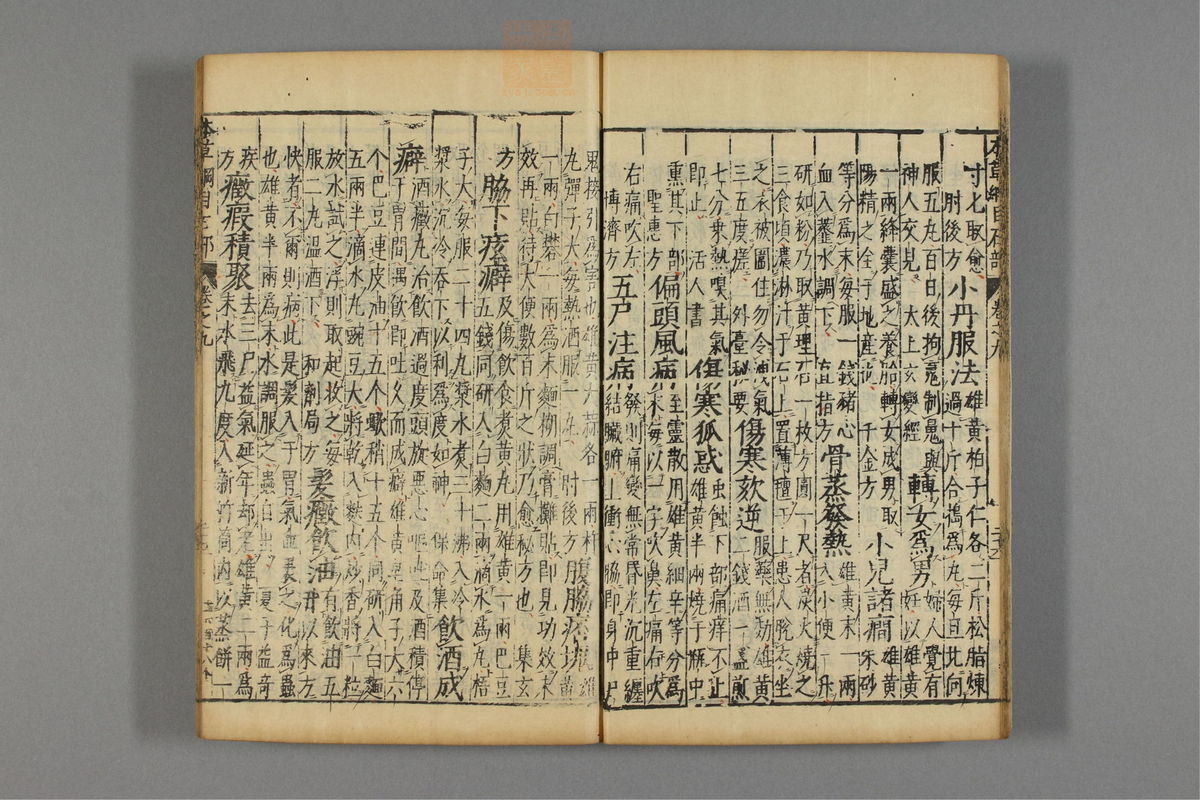 本草綱目石部 卷之九
寸匕取愈
肘後方
小丹服法
雄黃柏子仁各二斤松脂煉
過十斤合搗爲丸每旦北向
服五丸百日後拘鬼制鬽與
神人交見 太上玄變經
轉女爲男
婦人覺有
妊以雄黃
一兩絳囊盛之養胎轉女成男取
陽精之全于地產也 千金方
小兒諸癇
雄黃
朱砂
等分爲末每服一錢豬心
血入虀水調下 直指方
骨蒸發熱
雄黃末一兩
入小便一升
研如粉乃取黃理石一枚方圓一尺者炭火燒之
三食頃濃淋汁于石上置薄氊于上患人脫衣坐
之衣被圍住勿令洩氣
三五度瘥 外臺秘要
傷寒欬逆
服藥無効雄黃
二錢酒一盞煎
七分乘熱嗅其氣
即止 活人書
傷寒狐惑
虫蝕下部痛痒不止
雄黃半兩燒于瓶中
熏其下部
聖惠方
偏頭風病
至靈散用雄黃細辛等分爲
末每以一字吹鼻左痛右吹
右痛吹左
博濟方
五尸注病
發則痛變無常昏恍沉重纏
結臟腑上衝心脇即身中尸
鬼接引爲害也雄黃大蒜各一兩杵
丸彈子大每熱酒服一丸 肘後方
腹脇痞塊
雄
黃
一兩白礬一兩爲末麵糊調膏攤貼即見功效未
效再貼待大便數百斤之狀乃愈秘方也 集玄
方
脇下痃癖
及傷飲食煮黃丸用雄黃一兩巴豆
五錢同研入白麵二兩滴水爲丸梧
子大每服二十四丸漿水煮三十沸入冷
漿水沉冷吞下以利爲度如神 保命集
飲酒成
癖
酒癥丸治飲酒過度頭旋惡心嘔吐及酒積停
于胃間遇飲即吐久而成癖雄黃皂角子大六
个巴豆連皮油十五个蠍稍十五个同研入白麵
五兩半滴水丸豌豆大將乾入麩內炒香將一粒
放水試之浮則取起收之每
服二丸溫酒下 和劑局方
髮癥飲油
有飲油五
升以來方
快者不爾則病此是髮入于胃氣血裹之化爲蟲
也雄黃半兩爲末水調服之蟲自出 夏子益奇
疾
方
癥瘕積聚
去三尸益氣延年却老雄黃二兩爲
末水飛九度入新竹筒內以蒸餅一
本草綱目石部 卷之九